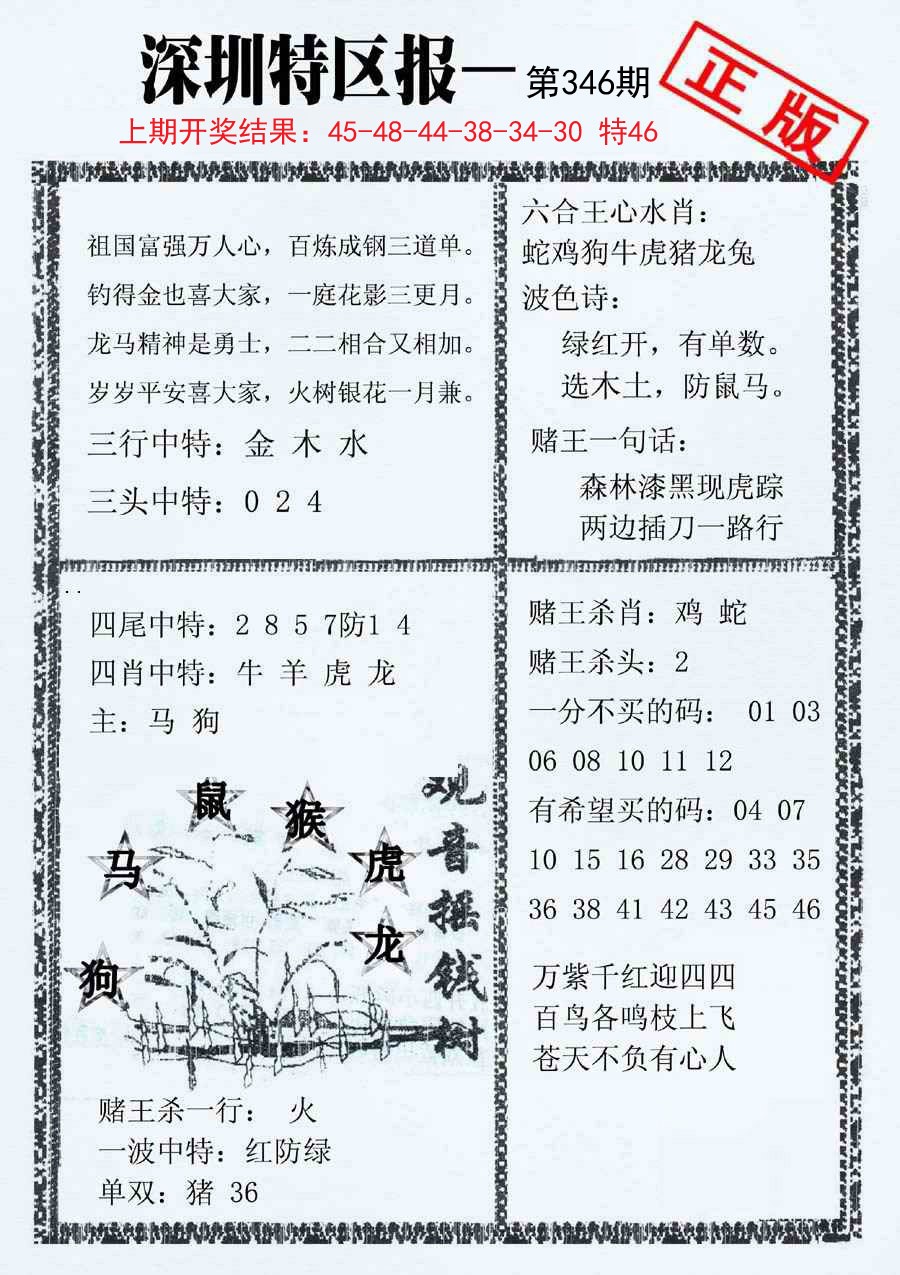 深圳特区报一 第346期
正版
上期开奖结果：45-48-44-38-34-30 特46
祖国富强万人心，百炼成钢三道单。
钓得金也喜大家，一庭花影三更月。
龙马精神是勇士，二二相合又相加。
岁岁平安喜大家，火树银花一月兼。
三行中特：金 木 水
三头中特：0 2 4
六合王心水肖：
蛇鸡狗牛虎猪龙兔
波色诗：
绿红开，有单数。
选木土，防鼠马。
赌王一句话：
森林漆黑现虎踪
两边插刀一路行
四尾中特：2 8 5 7防1 4
四肖中特：牛 羊 虎 龙
主：马 狗
鼠
猴
马
虎
狗
龙
观音摇钱树
赌王杀一行： 火
一波中特：红防绿
单双：猪 36
赌王杀肖：鸡 蛇
赌王杀头：2
一分不买的码： 01 03
06 08 10 11 12
有希望买的码：04 07
10 15 16 28 29 33 35
36 38 41 42 43 45 46
万紫千红迎四四
百鸟各鸣枝上飞
苍天不负有心人